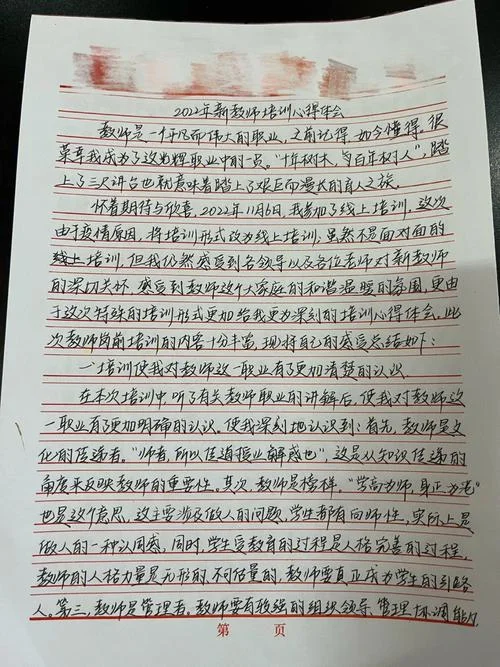 2022年新教师培训心得体会
教师是一个平凡而伟大的职业,之前记得,如今懂得。很
荣幸我成为了这光辉职业中的一员。"十年树木,百年树人",踏
上了三尺讲台也就意味着踏上了艰巨而漫长的育人之旅。
怀着期待与欣喜,2022年11月6日,我参加了线上培训,这次
由于疫情原因,将培训形式改为线上培训,虽然不是面对面的
线上培训,但我仍然感受到各领导以及各位老师对新教师
的深切关怀,感受到教师这个大家庭的和谐温暖的氛围,更由
于这次特殊的培训形式更加给我更为深刻的培训心得体会。此
次教师岗前培训的内容十分丰富,现将自己的感受总结如下:
一、培训使我对教师这一职业有了更加清楚的认识
在本次培训中,听了有关教师职业的讲解后,使我对教师这
一职业有了更加明确的认识,使我深刻地认识到:首先,教师是文
化的传递者。"师者,所以传道授业解惑也",这是从知识传递的
角度来反映教师的重要性。其次,教师是榜样。"学高为师,身正为范"
也是这个意思,这主要涉及做人的问题,学生都有向师性,实际上是
做人的一种认同感,同时,学生受教育的过程是人格完善的过程,
教师的人格力量是无形的,不可估量的,教师要真正成为学生的引路
人。第三,教师是管理者。教师要有较强的组织领导、管理协调能力,
第 页